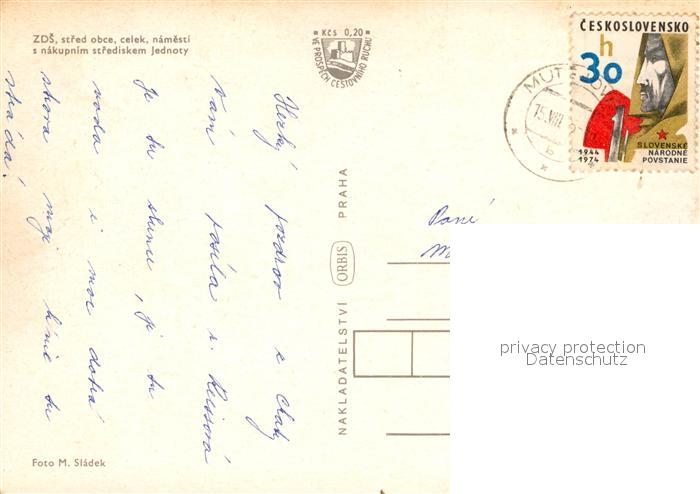 ZDŠ, střed obce, celek, náměstí
s nákupním střediskem Jednoty
Kčs 0,20
VE PROSPĚCH CESTOVNÍHO RUCHU
ČESKOSLOVENSKO
h
30
1944
1974
SLOVENSKÉ
NÁRODNÉ
POVSTANIE
15.VIII.
b
Hezký pozdrav z
Vám posílá
Je tu slunce, je tu
voda i moc dobrá
strava moji
strádá!
NAKLADATELSTVÍ ORBIS PRAHA
Paní
privacy protection
Datenschutz
Foto M. Sládek